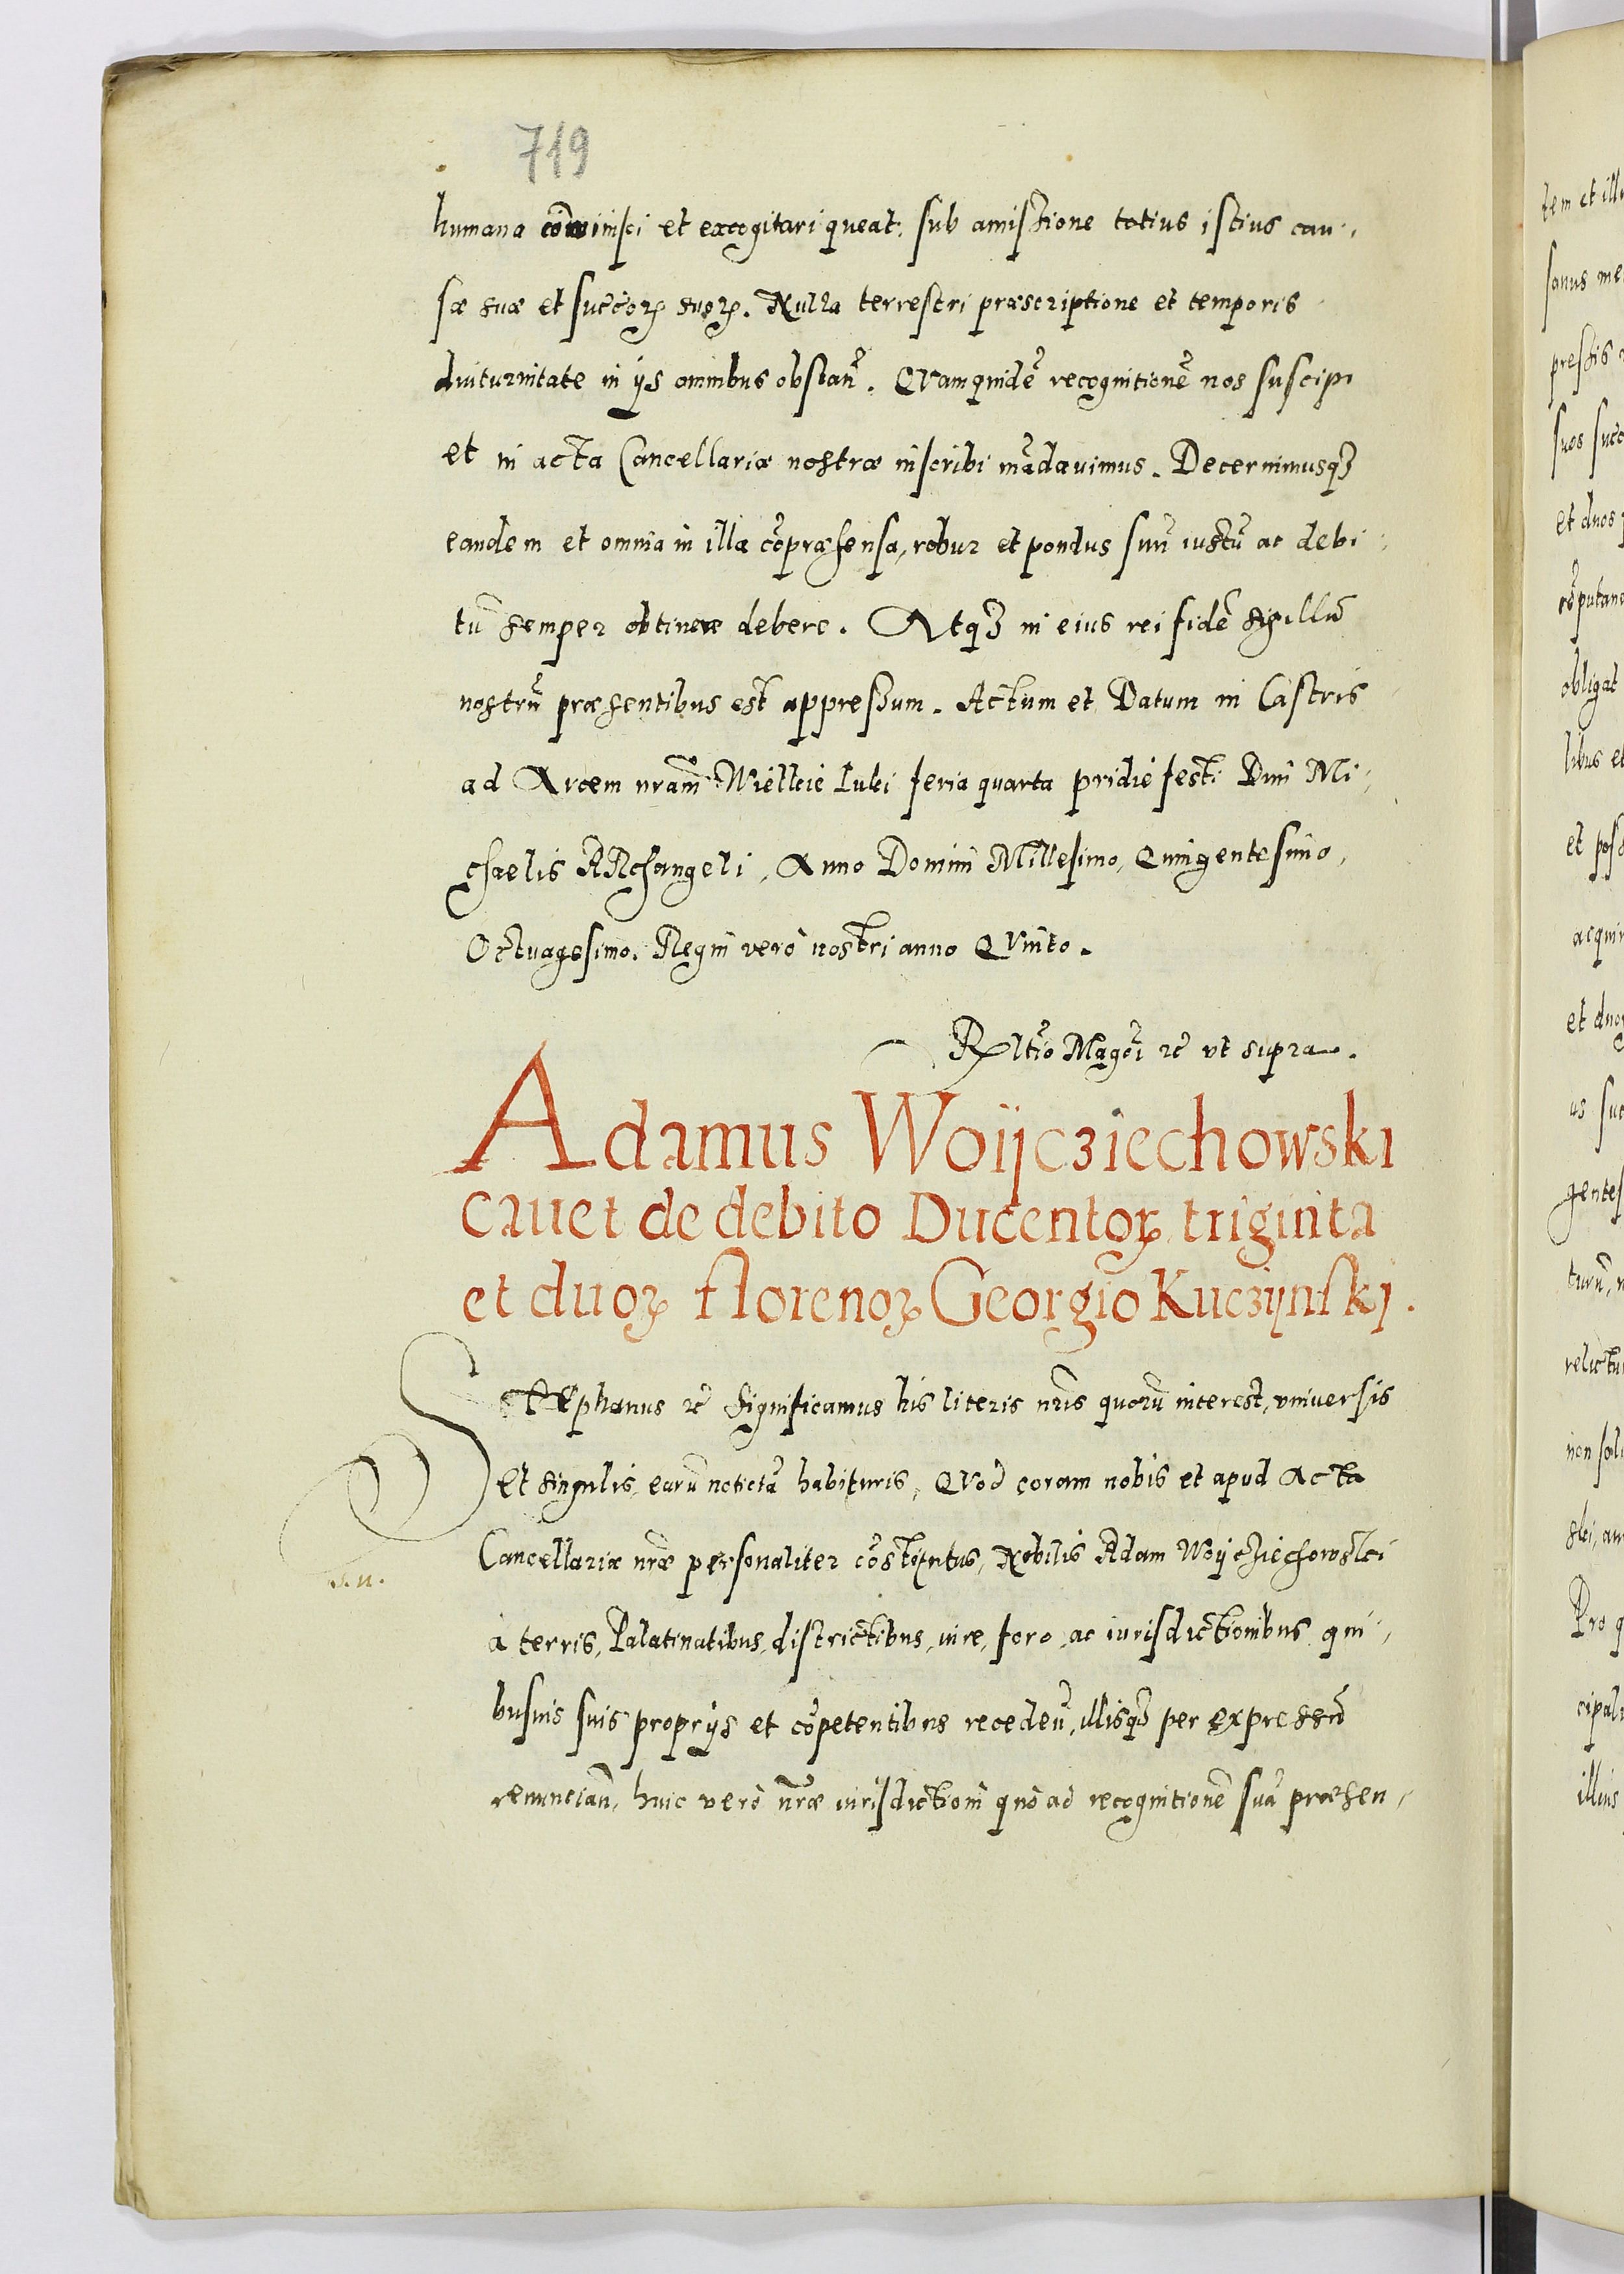 719
humana com̃inisci et excogitari queat. sub amissione totius istius cau-
sæ suæ et succoꝝ suoꝝ. Nulla terrestri præscriptione et temporis
diuturnitate in ijs omnibus obstan̄. QVamquidẽ recognitionẽ nos suscipi
et in acta Cancellariæ nostræ inscribi mãdauimus. Decernimusqꝫ
eandem et omnia in illa cõpræhensa, robur et pondus suũ iustũ ac debi-
tũ semper obtinere debere. Atqꝫ in eius rei fidẽ sigillũ
nostrũ præsentibus est appressum. Actum et Datum in Castris
ad Arcem nr̃am Wielkie Luki feria quarta pridie festi Diui Mi-
chaelis ARchangeli, Anno Domini Millesimo, Quingentesimo,
Octuagesimo. Regni vero nostri anno QVinto.
Rltĩo Magcĩ ꝛc̃ vt supra.
Adamus Woijcziechowski
cauet de debito Ducentoꝝ triginta
et duoꝝ florenoꝝ Georgio Kuczijnskj.
STEphanus ꝛc̃ Significamus his literis nr̃is quorũ interest, vniuersis
et singulis, earũ notictiã habituris, QVod coram nobis et apud Acta
Cancellariæ nr̃æ personaliter cõstitutus, Nobilis Adam Woijcziechowski
à terris, Palatinatibus, districtibus, iure, foro, ac iurisdictionibus qui-
busuis suis proprijs et cõpetentibus recedeñ, illisqꝫ per expressũ
renuncian̄, huic verò nr̃æ iurisdictioni quò ad recognitionẽ suã præsen-